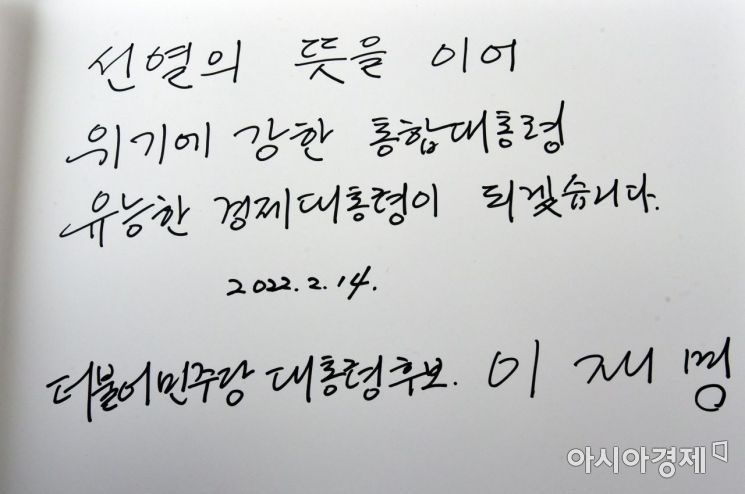 선열의 뜻을 이어
위기에 강한 통합대통령
유능한 경제대통령이 되겠습니다.
2022.2.14.
더불어민주당 대통령후보. 이재명
아시아경제